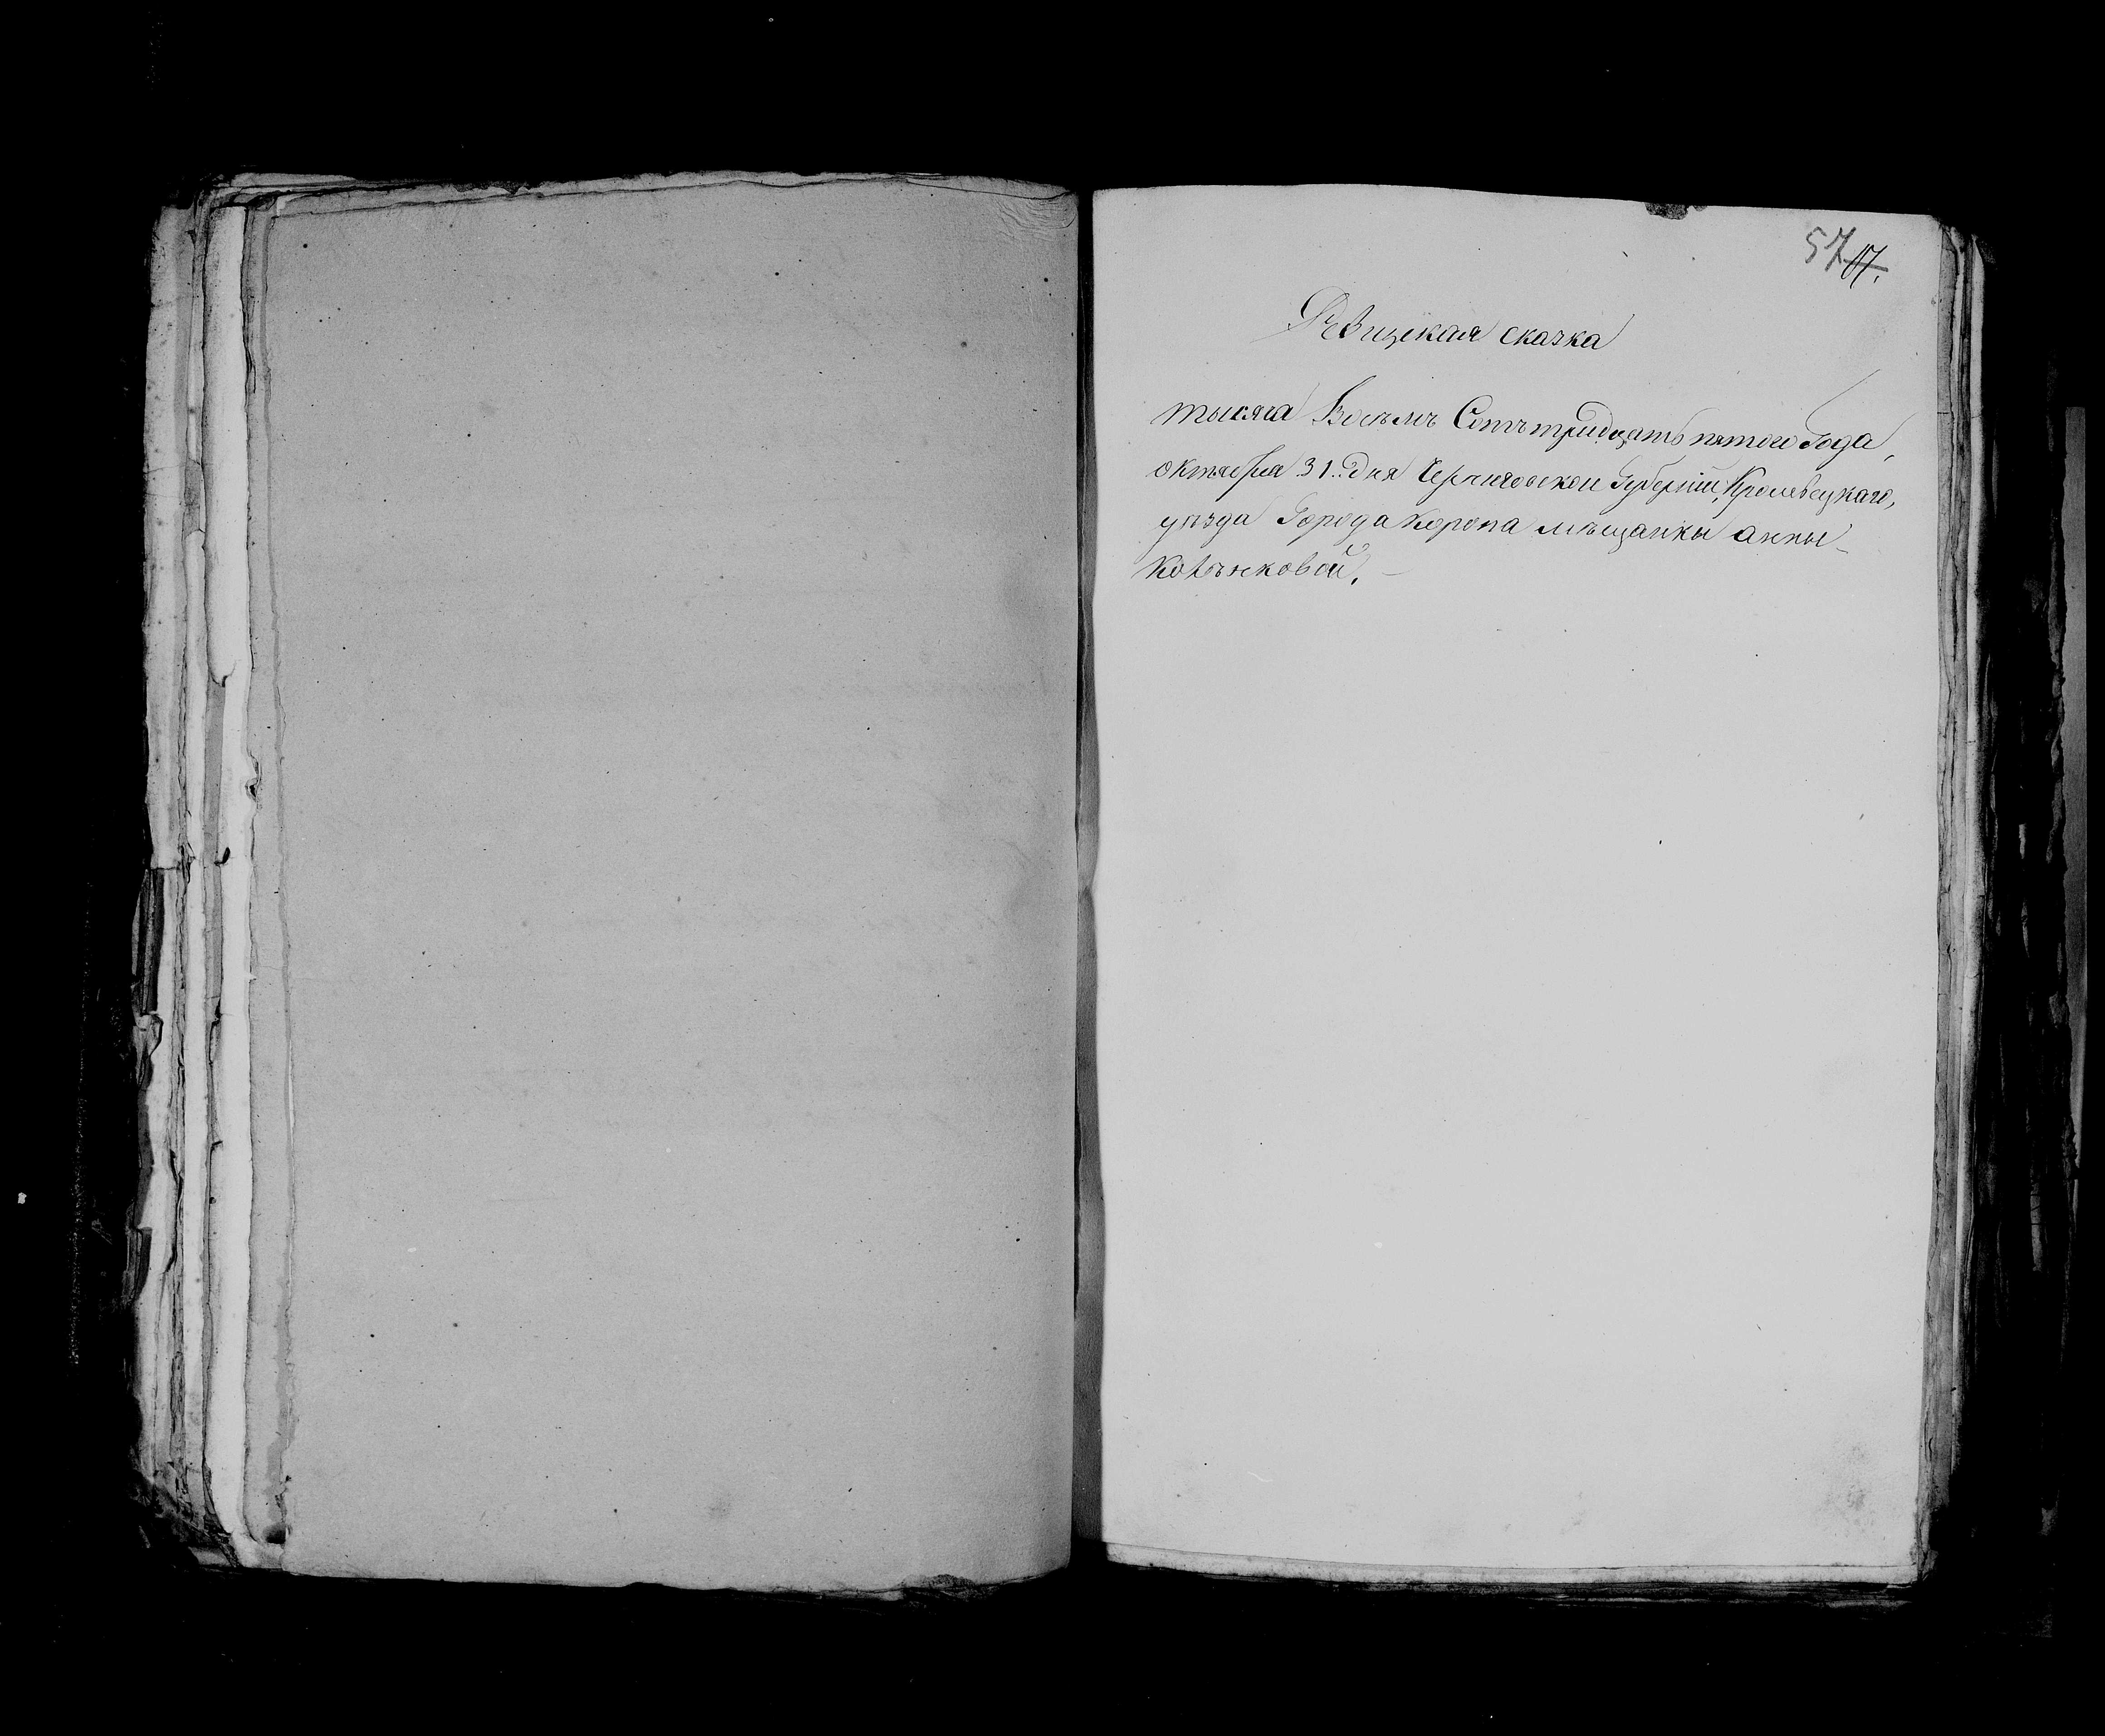 57 17.
Ревизская сказка
тысяча Восемъ Сотъ тридцать пятого Года,
октября 31. дня Черниговской Губерніи, Кролевецкаго,
уѣзда Города Коропа мѣщанки анны